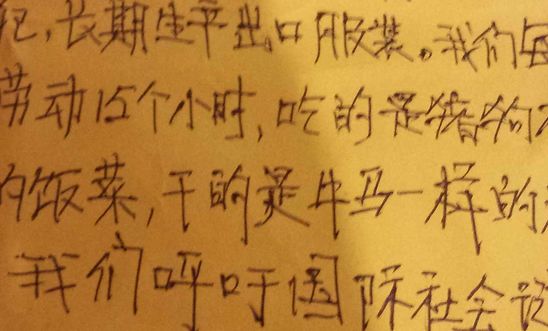 犯,长期生产出口服装。我们每
劳动15个小时,吃的是猪狗
的饭菜,干的是牛马一样的
我们呼吁国际社会